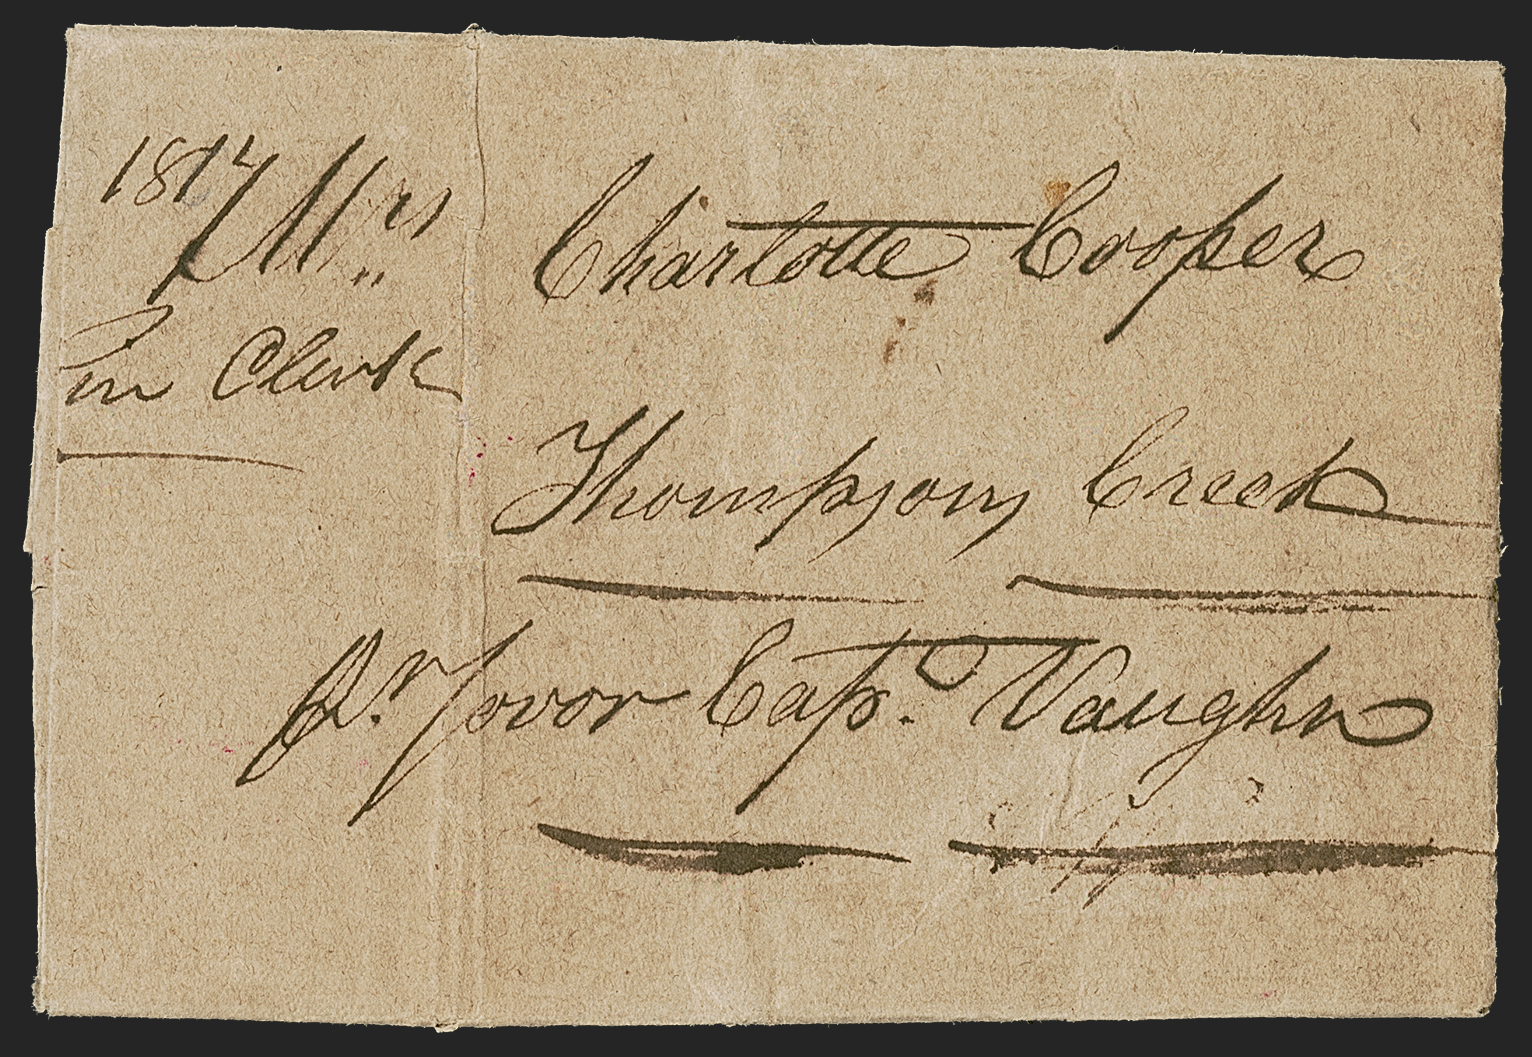 1817
Mrs Charlotte Cooper
Clerk
Thompsons Creek
Pr. favor Capt. Vaughn